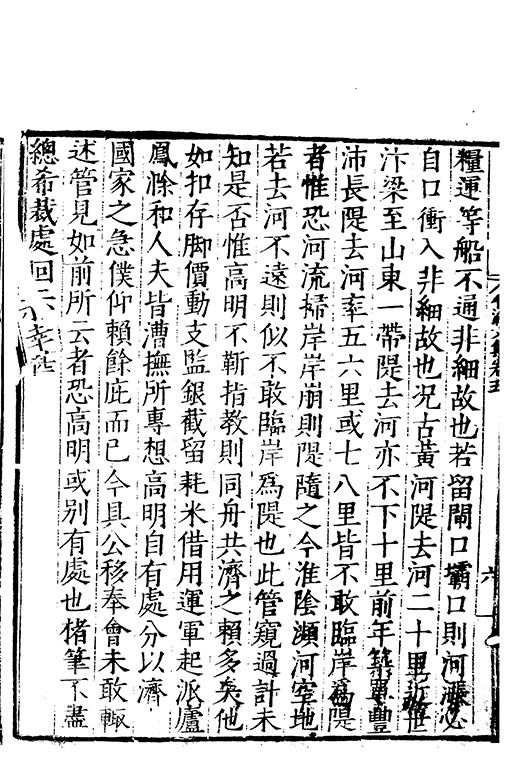 糧運等船不通非細故也若留閘口壩口則河漲必
自口衝入非細故也况古黃河隄去河二十里近世
汴梁至山東一帶隄去河亦不下十里前年築單豐
沛長隄去河率五六里或七八里皆不敢臨岸爲隄
者惟恐河流掃岸岸崩則隄隨之今淮陰瀕河空地
若去河不遠則似不敢臨岸爲隄也此管窺過計未
知是否惟高明不靳指教則同舟共濟之賴多矣他
如扣存脚價動支監銀截留耗米借用運軍起派廬
鳳滁和人夫皆漕撫所專想高明自有處分以濟
國家之急僕仰賴餘庇而已今具公移奉會未敢輙
述管見如前所云者恐高明或別有處也楮筆不盡
總希裁處回示幸甚